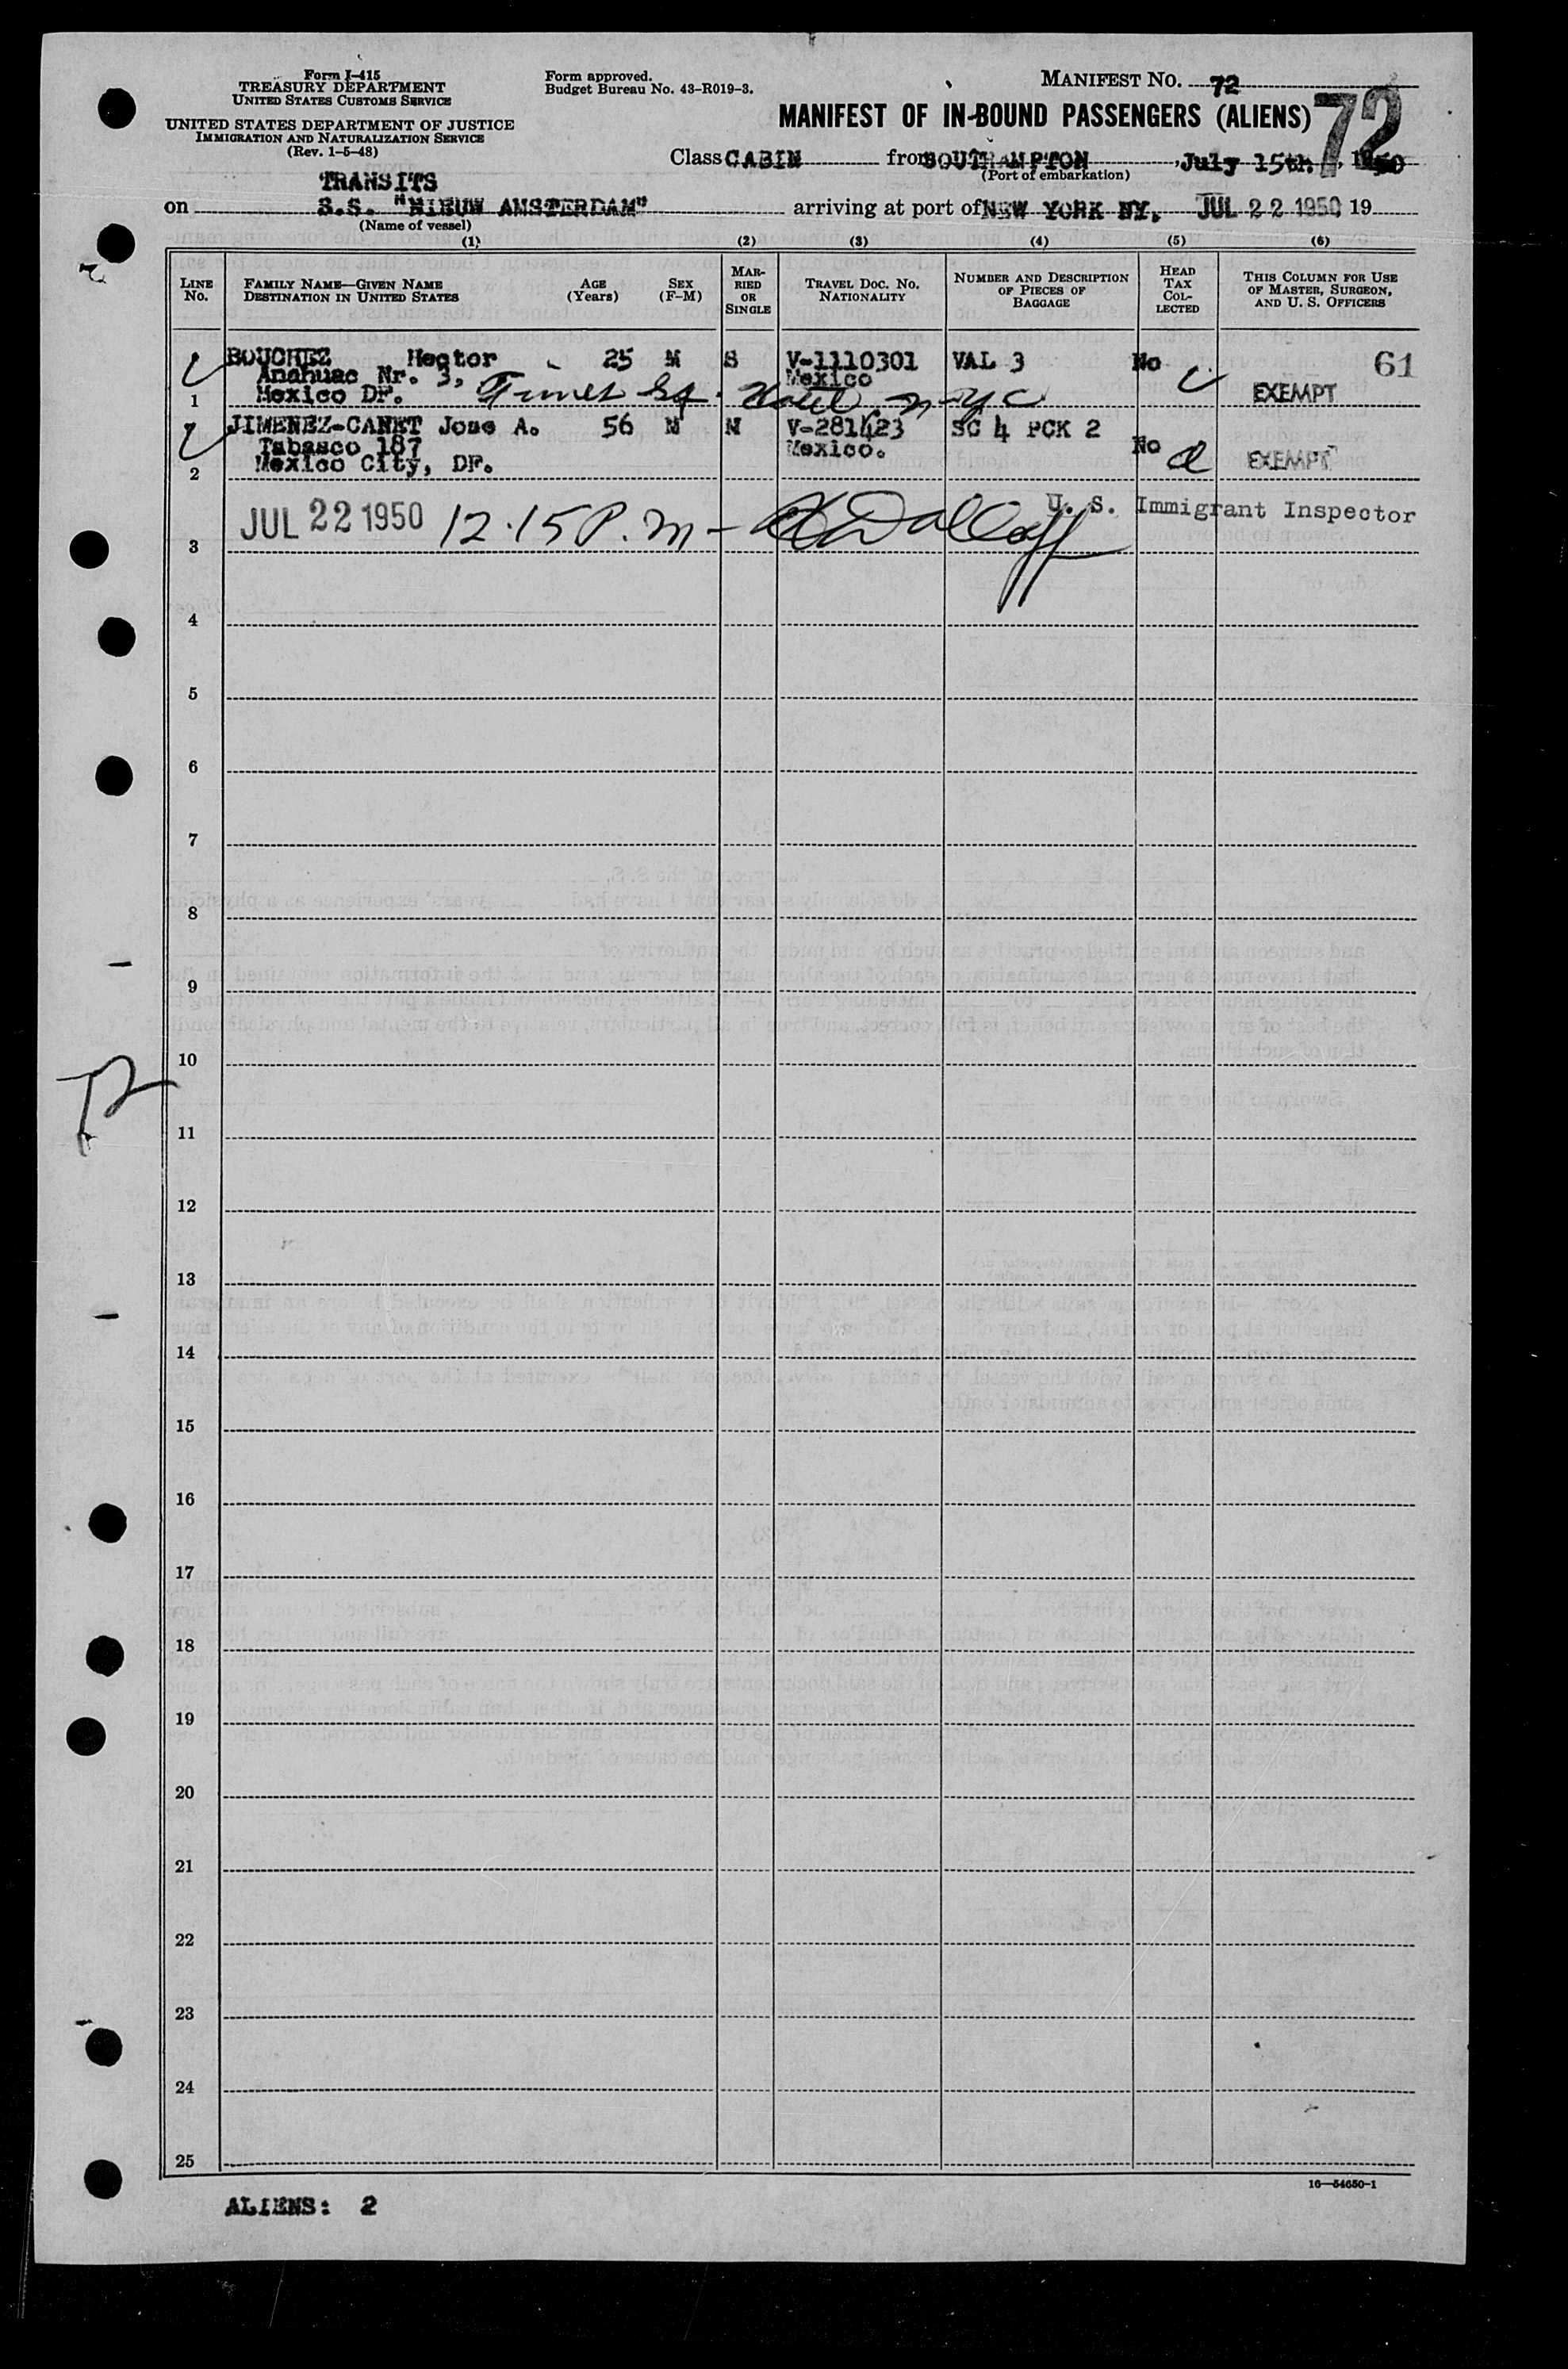 Form I-415
TREASURY DEPARTMENT
UNITED STATES CUSTOMS SERVICE
UNITED STATES DEPARTMENT OF JUSTICE
IMMIGRATION AND NATURALIZATION SERVICE
(Rev. 1-5-48)
Form approved.
Budget Bureau No. 43-R019-3.
MANIFEST NO. 72
72
MANIFEST OF IN-BOUND PASSENGERS (ALIENS)
Class CABIN from SOUTHAMPTON, July 15th, 1950
(Port of embarkation)
TRANSITS
on S.S. "NIEUW AMSTERDAM" arriving at port of NEW YORK NY. JUL 22 1950 19
(Name of vessel)
(1) (2) (3) (4) (5) (6)
LINE No. FAMILY NAME—GIVEN NAME DESTINATION IN UNITED STATES AGE (Years) SEX (F-M) MARRIED OR SINGLE TRAVEL DOC. NO. NATIONALITY NUMBER AND DESCRIPTION OF PIECES OF BAGGAGE HEAD TAX COLLECTED THIS COLUMN FOR USE OF MASTER, SURGEON, AND U. S. OFFICERS
BOUCHEZ Hector 25 M S V-1110301 VAL 3 No 61
Anahuac Nr. 3, Mexico
1 Mexico DF. Times Sq. Hotel N-Y C EXEMPT
JIMENEZ-CANET Jose A. 56 M M V-281423 SC 4 PCK 2
Tabasco 187 Mexico. No
2 Mexico City, DF. EXEMPT
JUL 22 1950 12.15 P.m - U. S. Immigrant Inspector
3
4
5
6
7
8
9
10
72
11
12
13
14
15
16
17
18
19
20
21
22
23
24
25
16—54650-1
ALIENS: 2